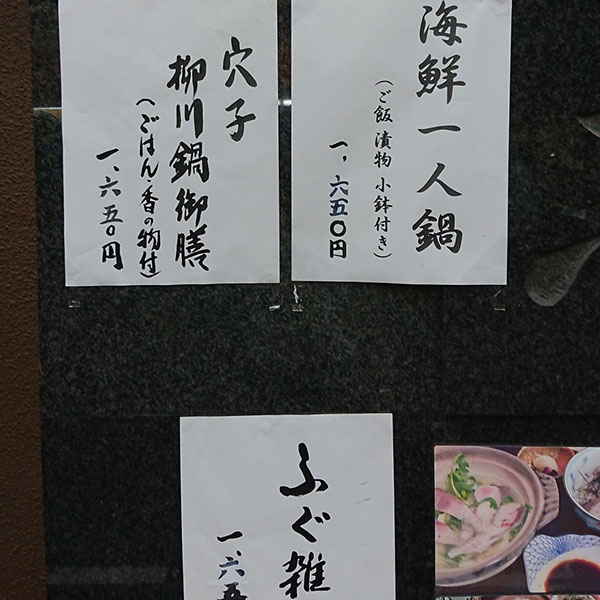 海鮮一人鍋
（ご飯 漬物 小鉢付き）
一、六五〇円
穴子
柳川鍋御膳
（ごはん・香の物付）
一、六五〇円
ふぐ雑
一、六五